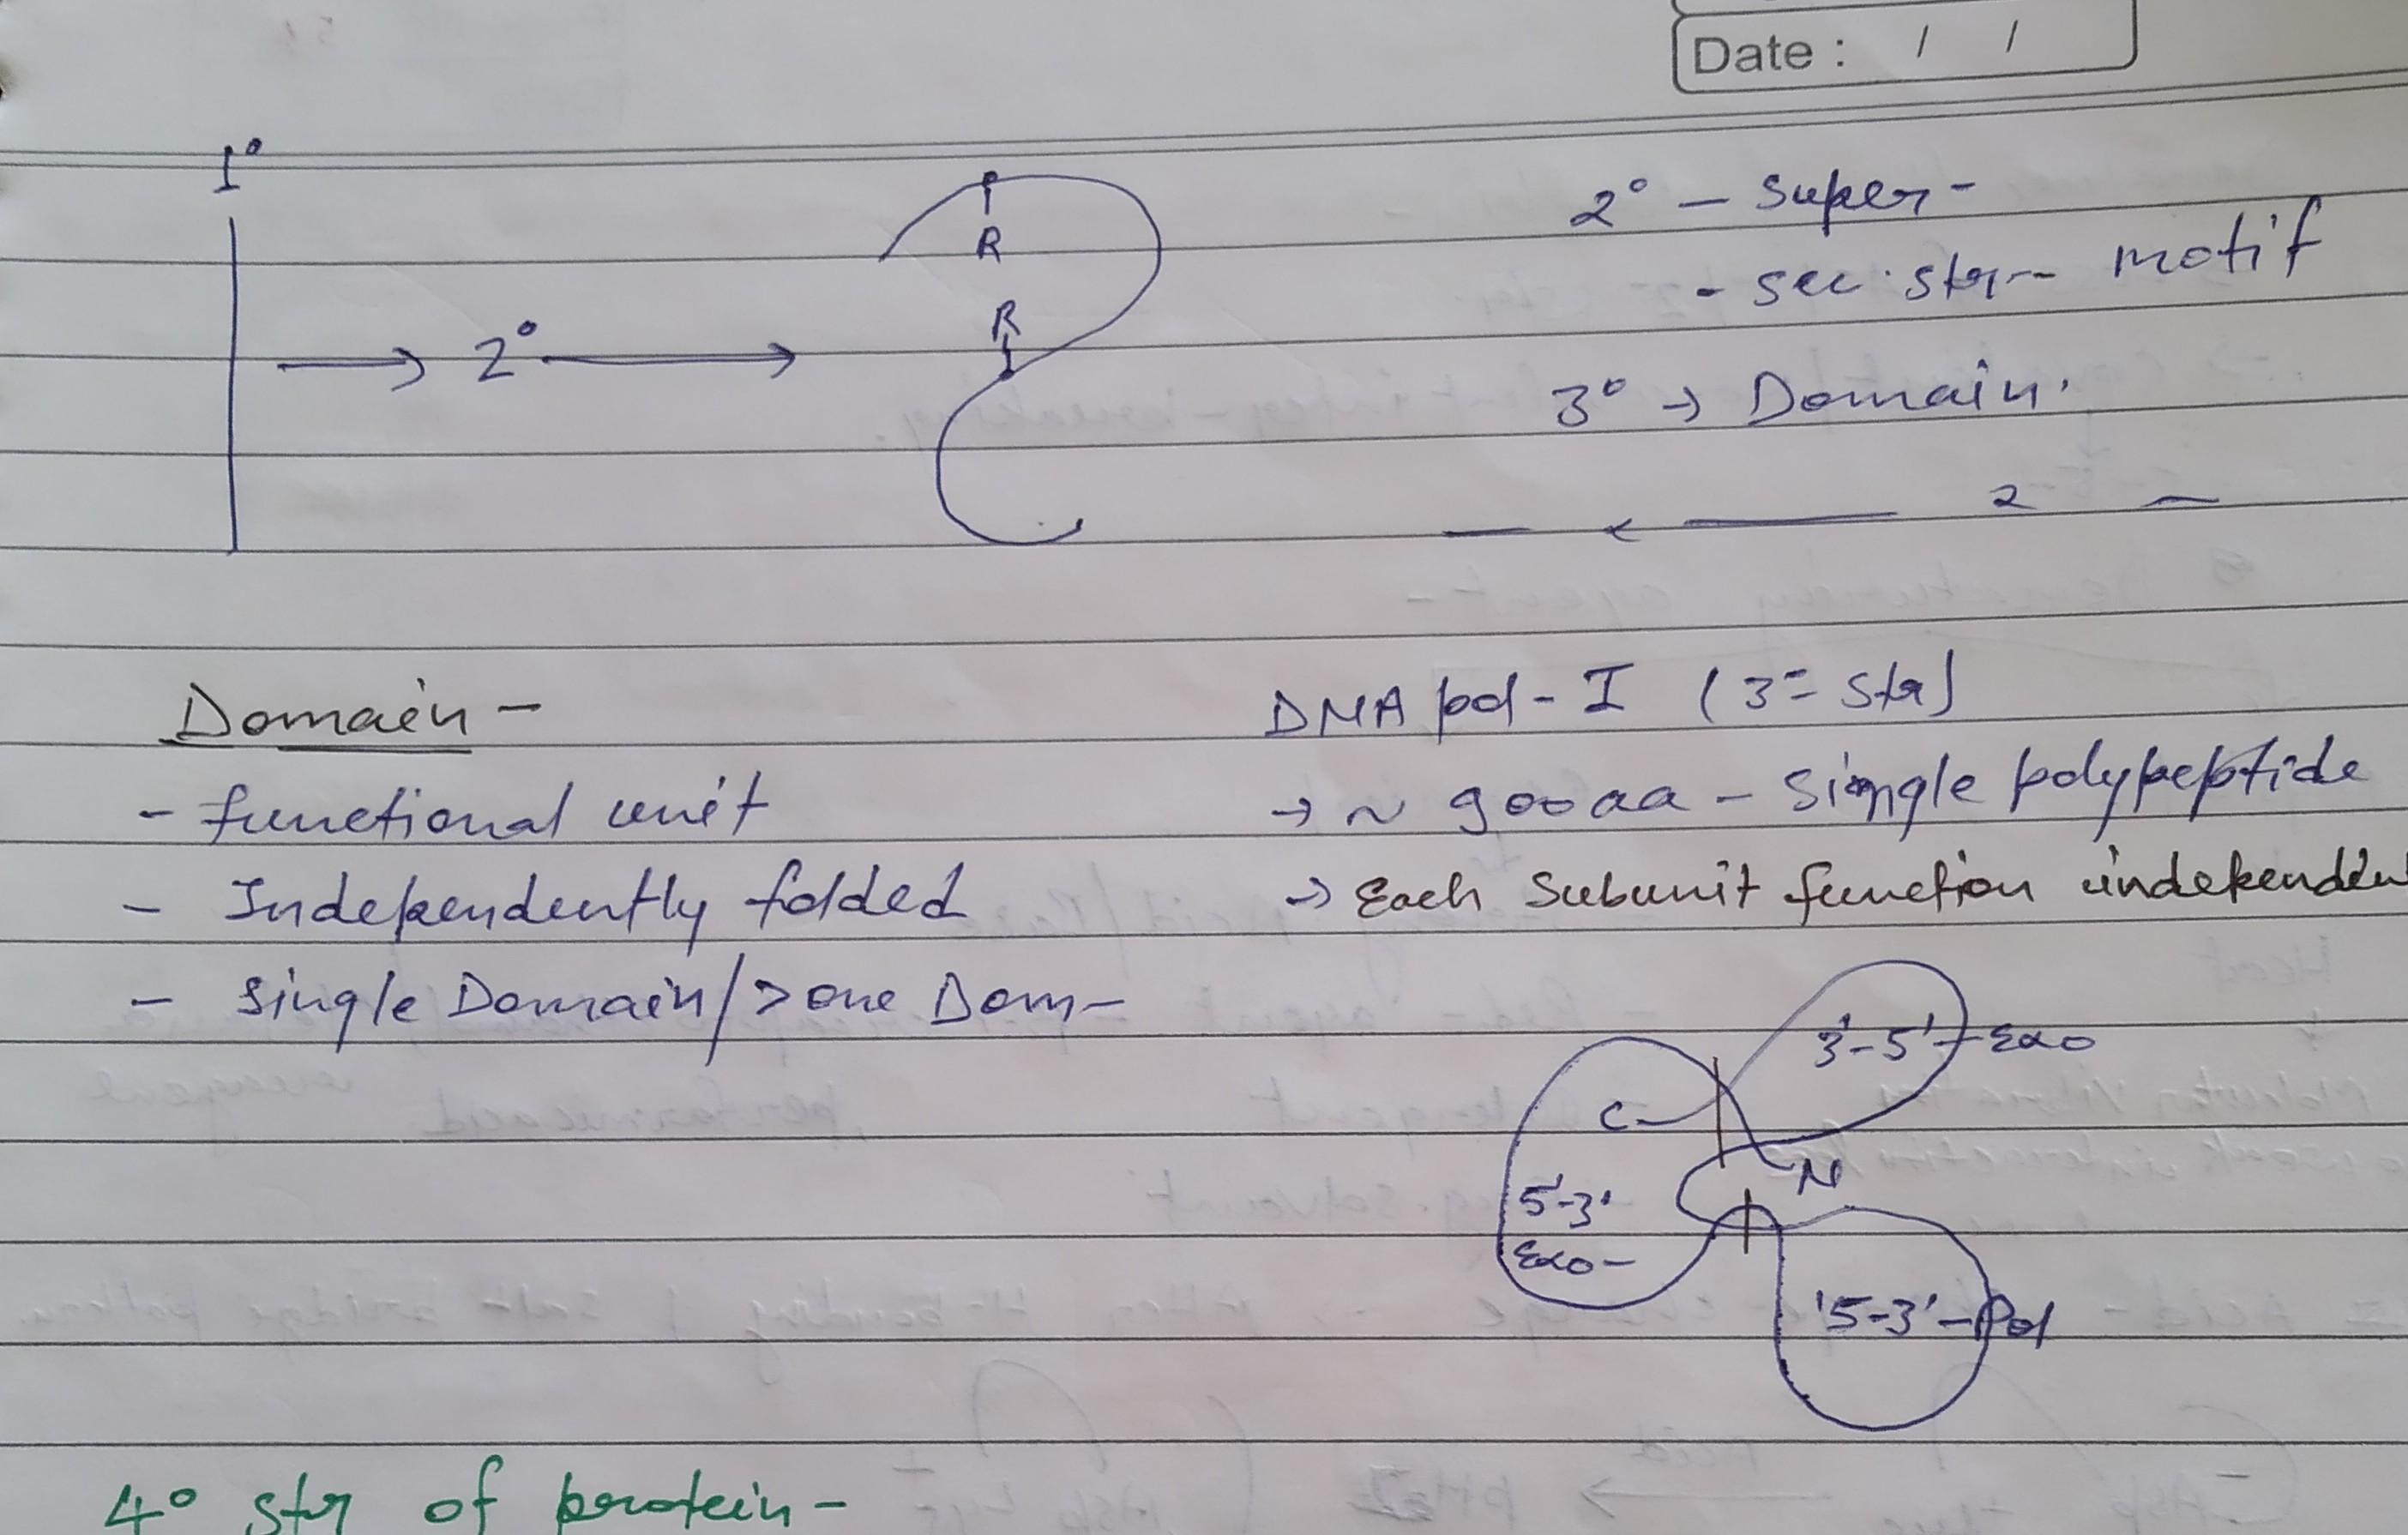 Date : / /
I°
R
R
→ 2° →
2° - Super -
- sec. str - motif
3° → Domain.
2
Domain -
- functional unit
- Independently folded
- Single Domain / > one Dom -
DNA pol - I (3° str)
→ ~ 900 aa - Single polypeptide
→ Each Subunit function independen
3'-5' - Exo
C
N
5'-3'
Exo -
'5-3' - Pol
4° str of protein -